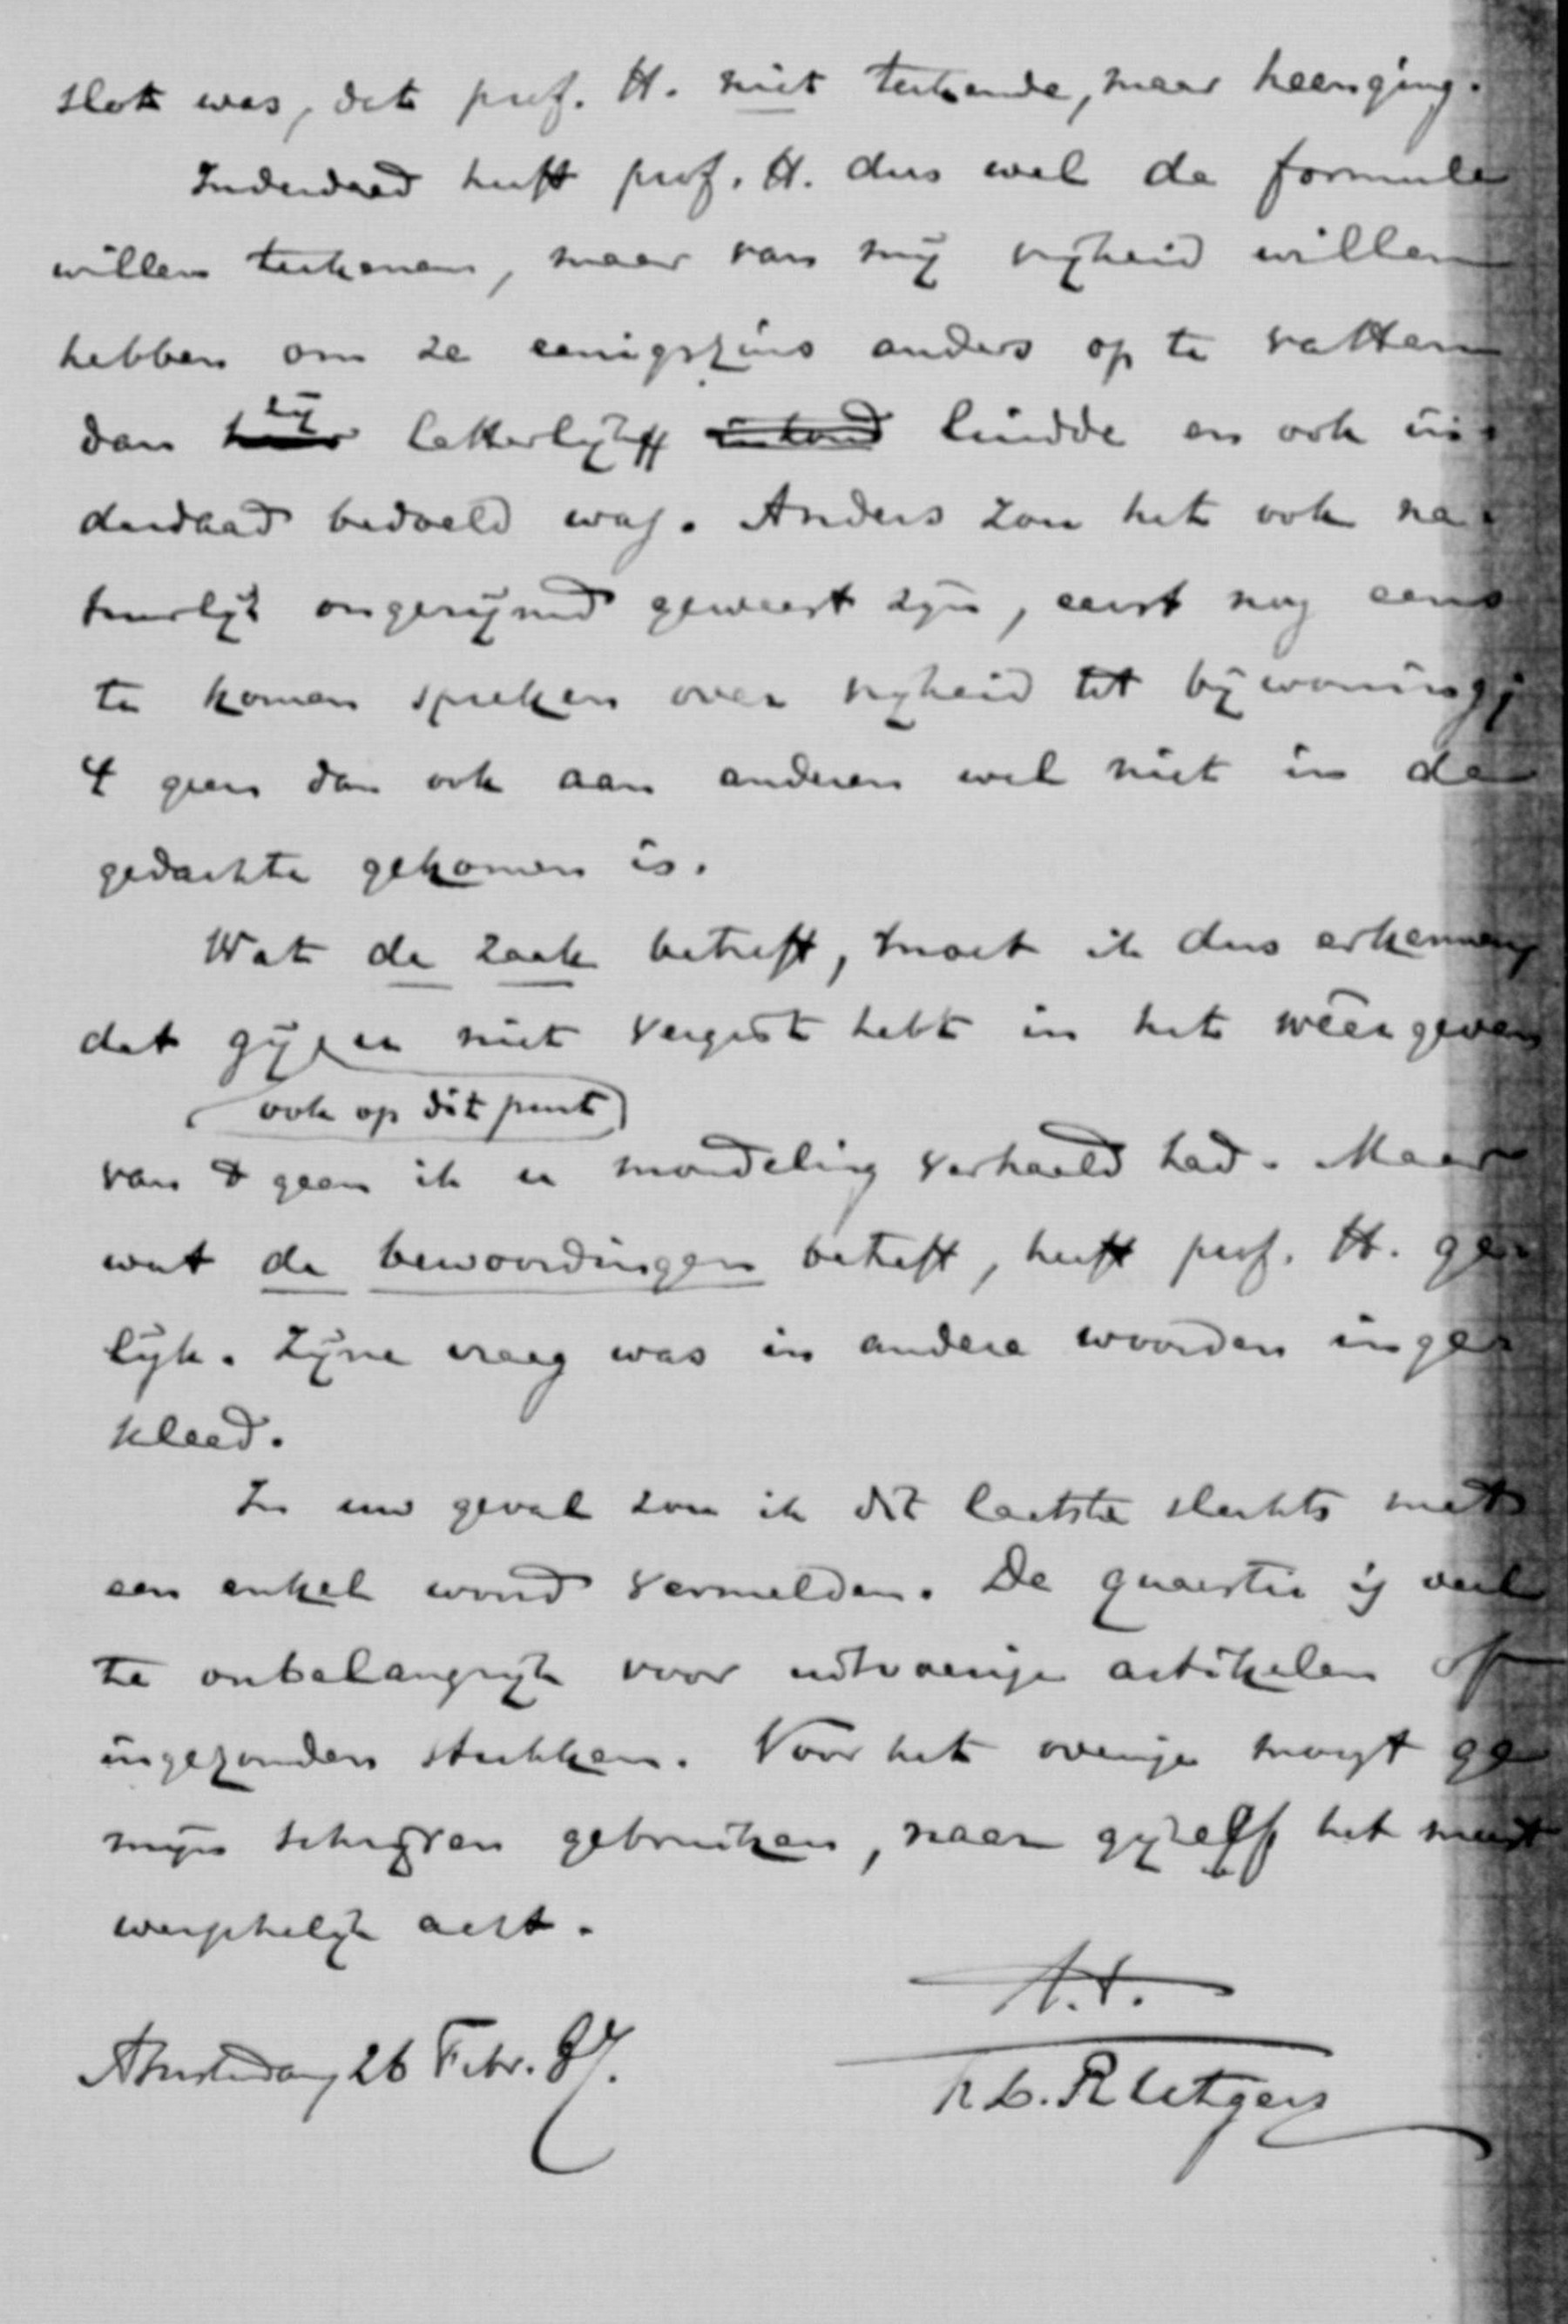 slot was, dat prof. H. niet teekende, maar heenging.
Inderdaad heeft prof. H. dus wel de formule
willen teekenen, maar van mij vrijheid willen
hebben om ze eenigszins anders op te vatten
dan zij letterlijk luidde en ook in-
derdaad bedoeld was. Anders zou het ook na-
tuurlijk ongerijmd geweest zijn, eerst nog eens
te komen spreken over vrijheid tot bijwoning;
't geen dan ook aan anderen wel niet in de
gedachte gekomen is.
Wat de zaak betreft, moet ik dus erkennen,
dat gij u niet vergist hebt in het weêrgeven
ook op dit punt
van 't geen ik u mondeling verhaald had. Maar
wat de bewoordingen betreft, heeft prof. H. ge-
lijk. Zijne vraag was in andere woorden inge-
kleed.
In uw geval zou ik dit laatste slechts met
een enkel woord vermelden. De quaestie is veel
te onbelangrijk voor uitvoerige artikelen of
ingezonden stukken. Voor het overige moogt ge
mijn schrijven gebruiken, naar gij zelf het meest
wenschelijk acht.
t.t.
Amsterdam, 26 Febr. 87.
F. L. Rutgers